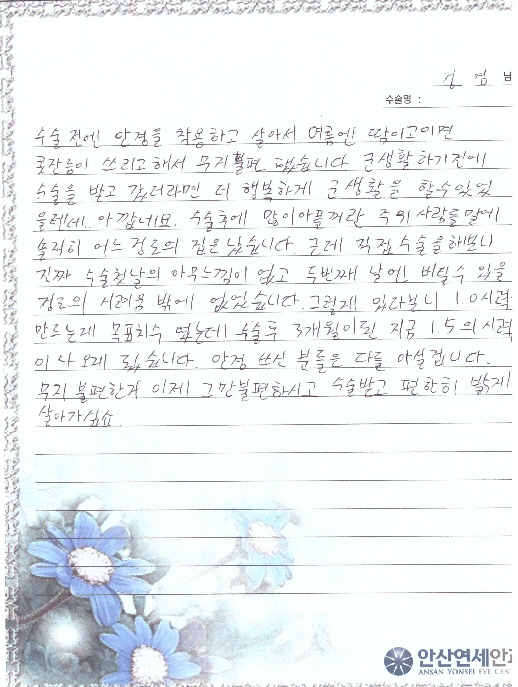 님
수술명 :
수술 전엔 안경을 착용하고 살아서 여름엔 땀이고이면
콧잔등이 쓰리고해서 무지 불편 했습니다 군생활하기전에
수술을 받고 갔더라면 더 행복하게 군생활을 할수있었
을텐데 아깝네요. 수술후에 많이아플꺼란 주위사람들말에
솔직히 어느정도의 겁은 났습니다. 근데 직접수술을해보니
진짜 수술첫날의 아무느낌이 없고 두번째 날엔 버틸수 있을
정도의 시려움 밖에 없었습니다. 그렇게 있다보니 1.0시력
만으는게 목표치수 였는데 수술후 3개월이된 지금 1.5의시력
이 나오게 됬습니다. 안경 쓰신 분들은 다를 아실겁니다.
무지 불편한거 이제 그만불편하시고 수술받고 편한히 밝게
살아가십쇼.
안산연세안과
ANSAN YONSEI EYE CEN